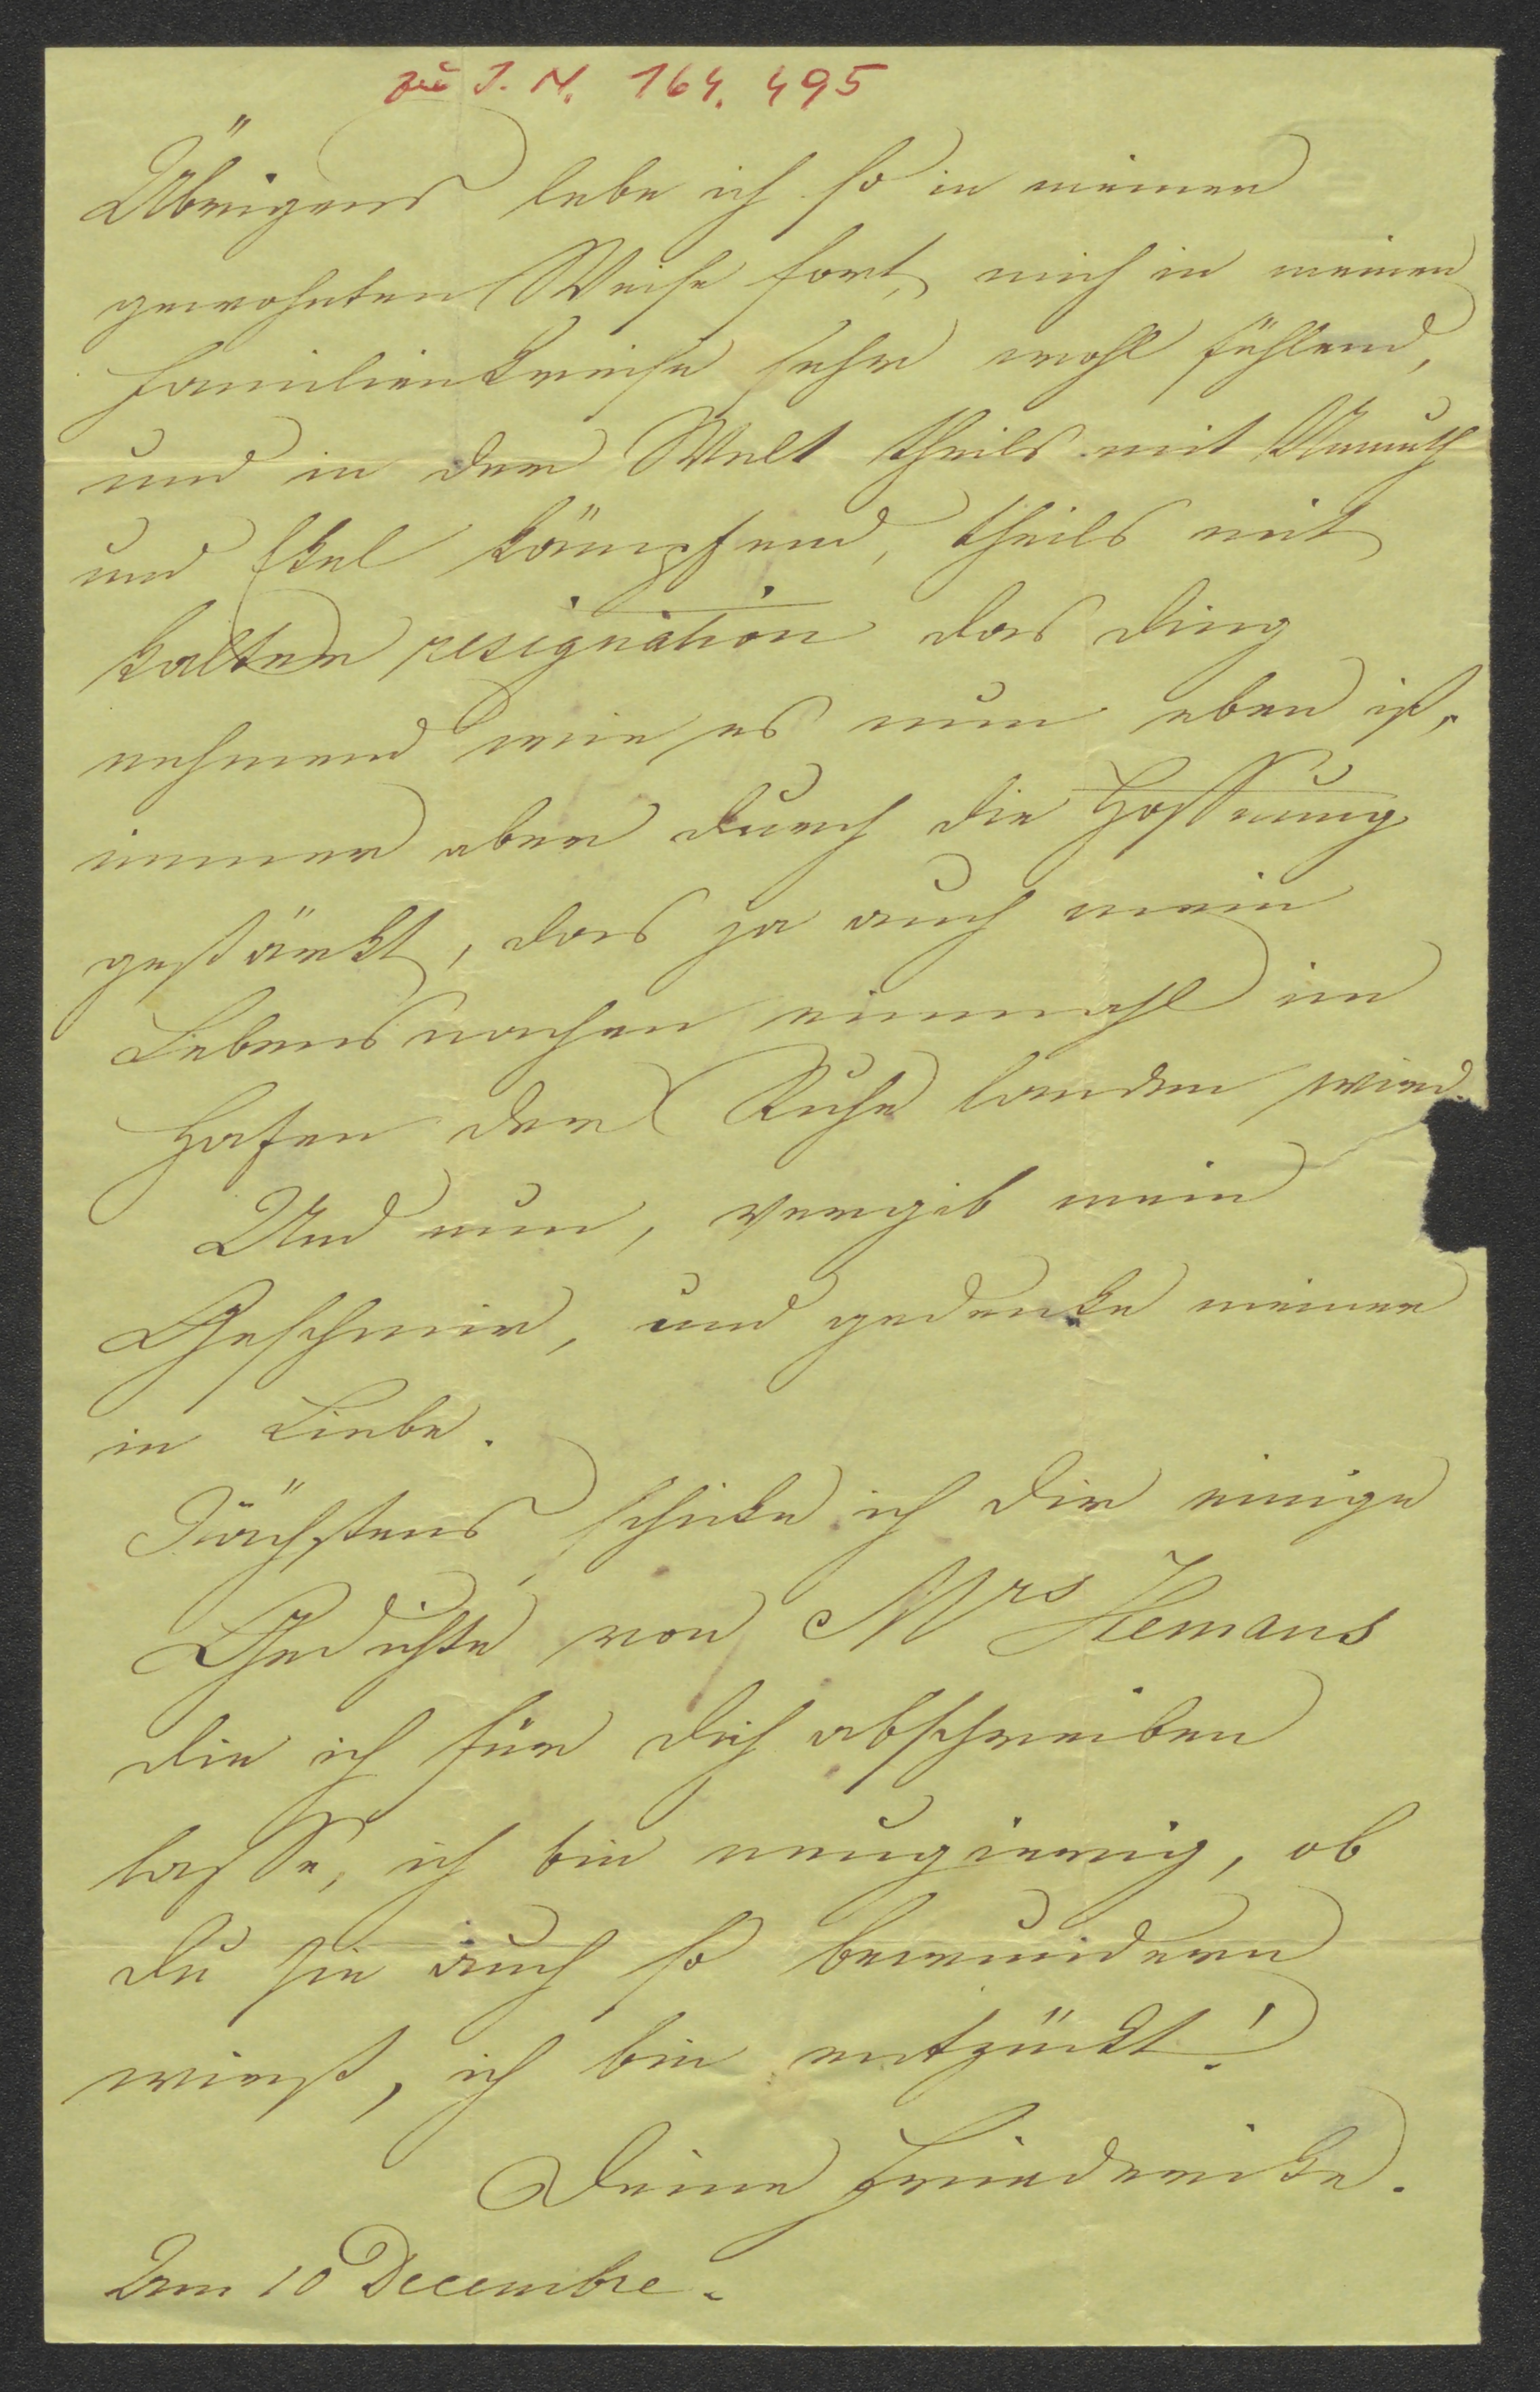 zu I. N. 164.495
Übrigens lebe ich so in meiner
gewohnten Weise fort, mich in meinem
Familienkreise sehr wohl fühlend,
und in der Welt theils mit Unmuth
und Ekel kämpfend, theils mit
kalter resignation das Ding
nehmend wie es nun eben ist,
immer aber durch die Hoffnung
gestärkt, das ja auch mein
Lebensnachen einmahl im
Hafen der Ruhe landen wird.
Und nun, vergib mein
Geschmier, und gedenke meiner
in Liebe.
Nächstens schicke ich dir einige
Gedichte von Mrs Hemans
die ich für dich abschreiben
lasse, ich bin neugierig, ob
du sie auch so bewundern
wirst, ich bin entzückt!
Deine Friedericke.
Am 10 Decembre.